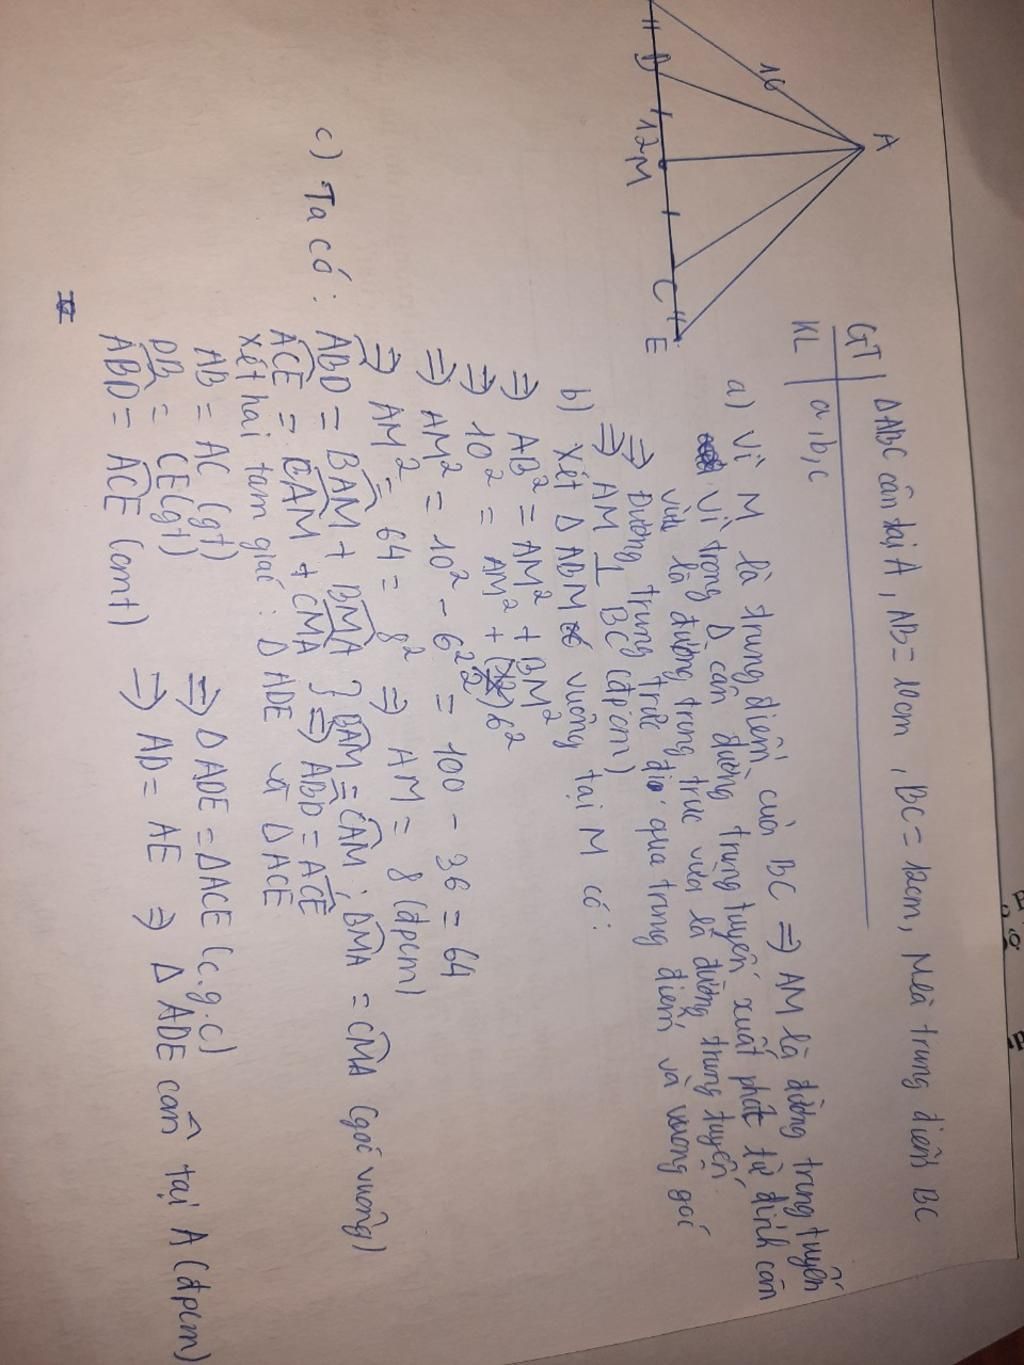 A
16
H
D
12
M
C
E
GT ΔABC cân tại A, AB = 10cm, BC = 12cm, M là trung điểm BC
KL a,b,c
a) Vì M là trung điểm của BC ⇒ AM là đường trung tuyến
Vì trong Δ cân đường trung tuyến xuất phát từ đỉnh cân
vừa là đường trung trực vừa là đường trung tuyến
⇒ Đường trung trực đi qua trung điểm và vuông góc
⇒ AM ⊥ BC (đpcm)
b) Xét Δ ABM vuông tại M có:
⇒ AB² = AM² + BM²
⇒ 10² = AM² + 6²
⇒ AM² = 10² - 6² = 100 - 36 = 64
⇒ AM² = 64 = 8² ⇒ AM = 8 (đpcm)
c) Ta có: ABD = BAM + BMA } BAM = CAM; BMA = CMA (góc vuông)
ACE = CAM + CMA ⇒ ABD = ACE
Xét hai tam giác: Δ ADE và Δ ACE
AB = AC (gt)
DB = CE (gt) ⇒ Δ ADE = ΔACE (c.g.c)
ABD = ACE (cmt) ⇒ AD = AE ⇒ Δ ADE cân tại A (đpcm)